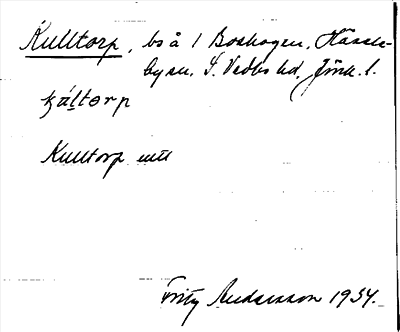 Kulltorp, bs å 1 Boskogen, Hässle-
by sn, S. Vedbo hd, Jönk. l.
kúltorp
Kulltorp utt
Fritz Andersson 1934.